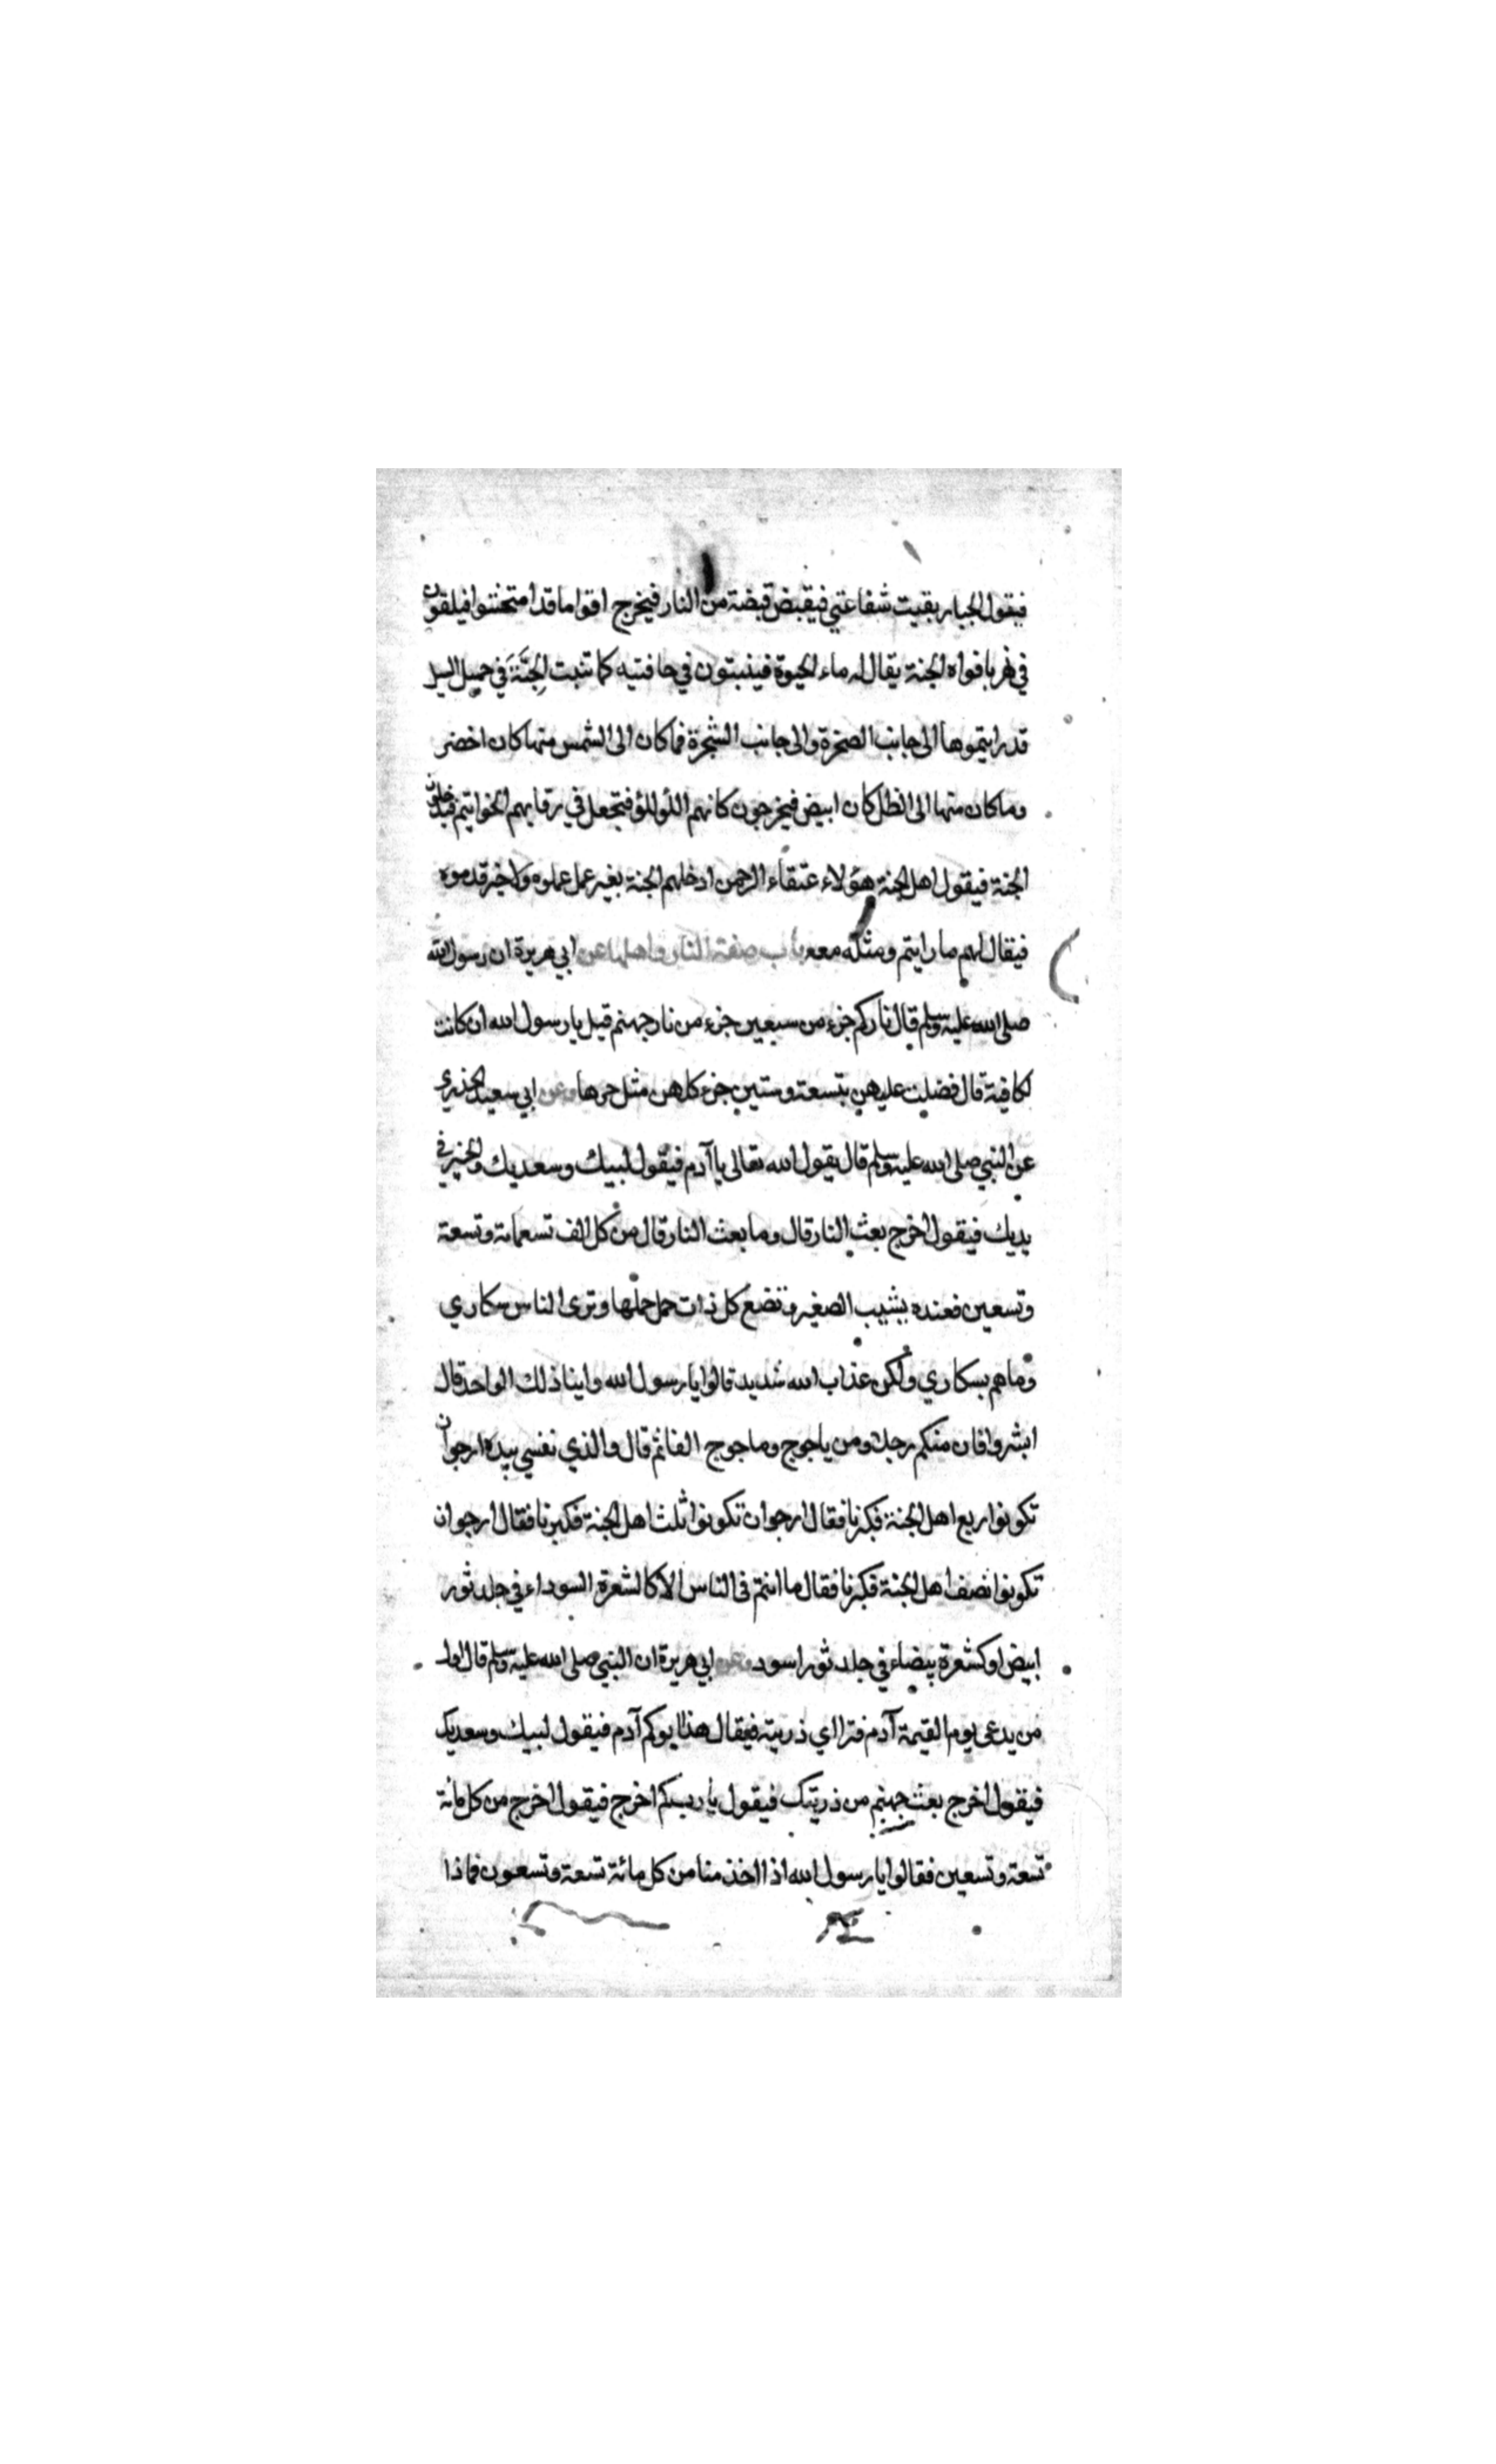 فيقول الجبار بقيت شفاعتي فيقبض قبضة من النار فيخرج اقواما قد امتحشوا فيلقون
في نهر بافواه الجنة يقال له ماء الحيوة فينبتون في حافتيه كما تنبت الحبة في حميل السيل
قد رايتموها الى جانب الصخرة والى جانب الشجرة فما كان الى الشمس منها كان اخضر
وما كان منها الى الظل كان ابيض فيخرجون كانهم اللؤلؤ فتجعل في رقابهم الخواتيم فيدخلون
الجنة فيقول اهل الجنة هؤلاء عتقاء الرحمن ادخلهم الجنة بغير عمل عملوه ولا خير قدموه
فيقال لهم ما رايتم ومثله معه باب صفة النار واهلها عن ابي هريرة ان رسول الله
صلى الله عليه وسلم قال ناركم جزء من سبعين جزء من نار جهنم قيل يا رسول الله ان كانت
لكافية قال فضلت عليهن بتسعة وستين جزء كلهن مثل حرها وعن ابي سعيد الخدري
عن النبي صلى الله عليه وسلم قال يقول الله تعالى يا آدم فيقول لبيك وسعديك والخير في
يديك فيقول اخرج بعث النار قال وما بعث النار قال من كل الف تسعمائة وتسعة
وتسعين فعنده يشيب الصغير وتضع كل ذات حمل حملها وترى الناس سكاري
وما هم بسكاري ولكن عذاب الله شديد قالوا يا رسول الله واينا ذلك الواحد قال
ابشروا فان منكم رجل ومن ياجوج وماجوج الفا ثم قال والذي نفسي بيده ارجوا ان
تكونوا ربع اهل الجنة فكبرنا فقال ارجوا ان تكونوا ثلث اهل الجنة فكبرنا فقال ارجوا ان
تكونوا نصف اهل الجنة فكبرنا فقال ما انتم في الناس الا كالشعرة السوداء في جلد ثور
ابيض او كشعرة بيضاء في جلد ثور اسود وعن ابي هريرة ان النبي صلى الله عليه وسلم قال اول
من يدعى يوم القيمة آدم فتراءي ذريته فيقال هذا ابوكم آدم فيقول لبيك وسعديك
فيقول اخرج بعث جهنم من ذريتك فيقول يا رب كم اخرج فيقول اخرج من كل مائة
تسعة وتسعين فقالوا يا رسول الله اذا اخذ منا من كل مائة تسعة وتسعون فماذا